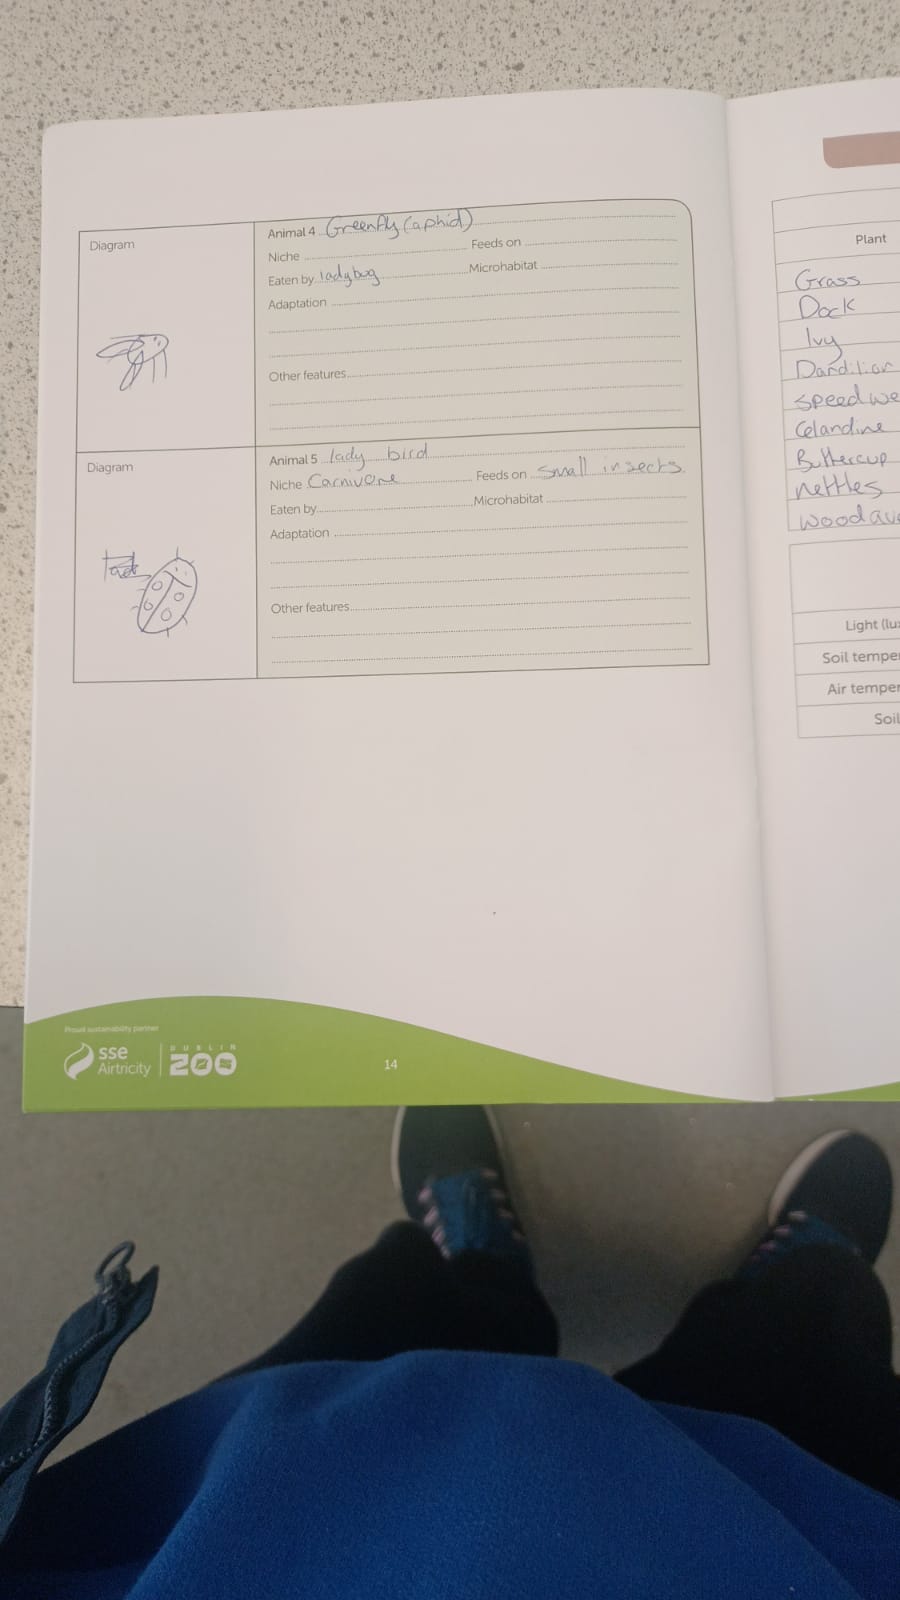 Diagram
Animal 4 Greenfly (aphid)
Niche Feeds on
Eaten by ladybug Microhabitat
Adaptation
Other features
Diagram
Animal 5 lady bird
Niche Carnivore Feeds on Small insects
Eaten by Microhabitat
Adaptation
Other features
Proud sustainability partner
sse
Airtricity
DUBLIN
ZOO
14
Plant
Grass
Dock
Ivy
Dandilion
Speedwe
Celandine
Buttercup
Nettles
Wood ave
Light (lu
Soil temper
Air temper
Soil